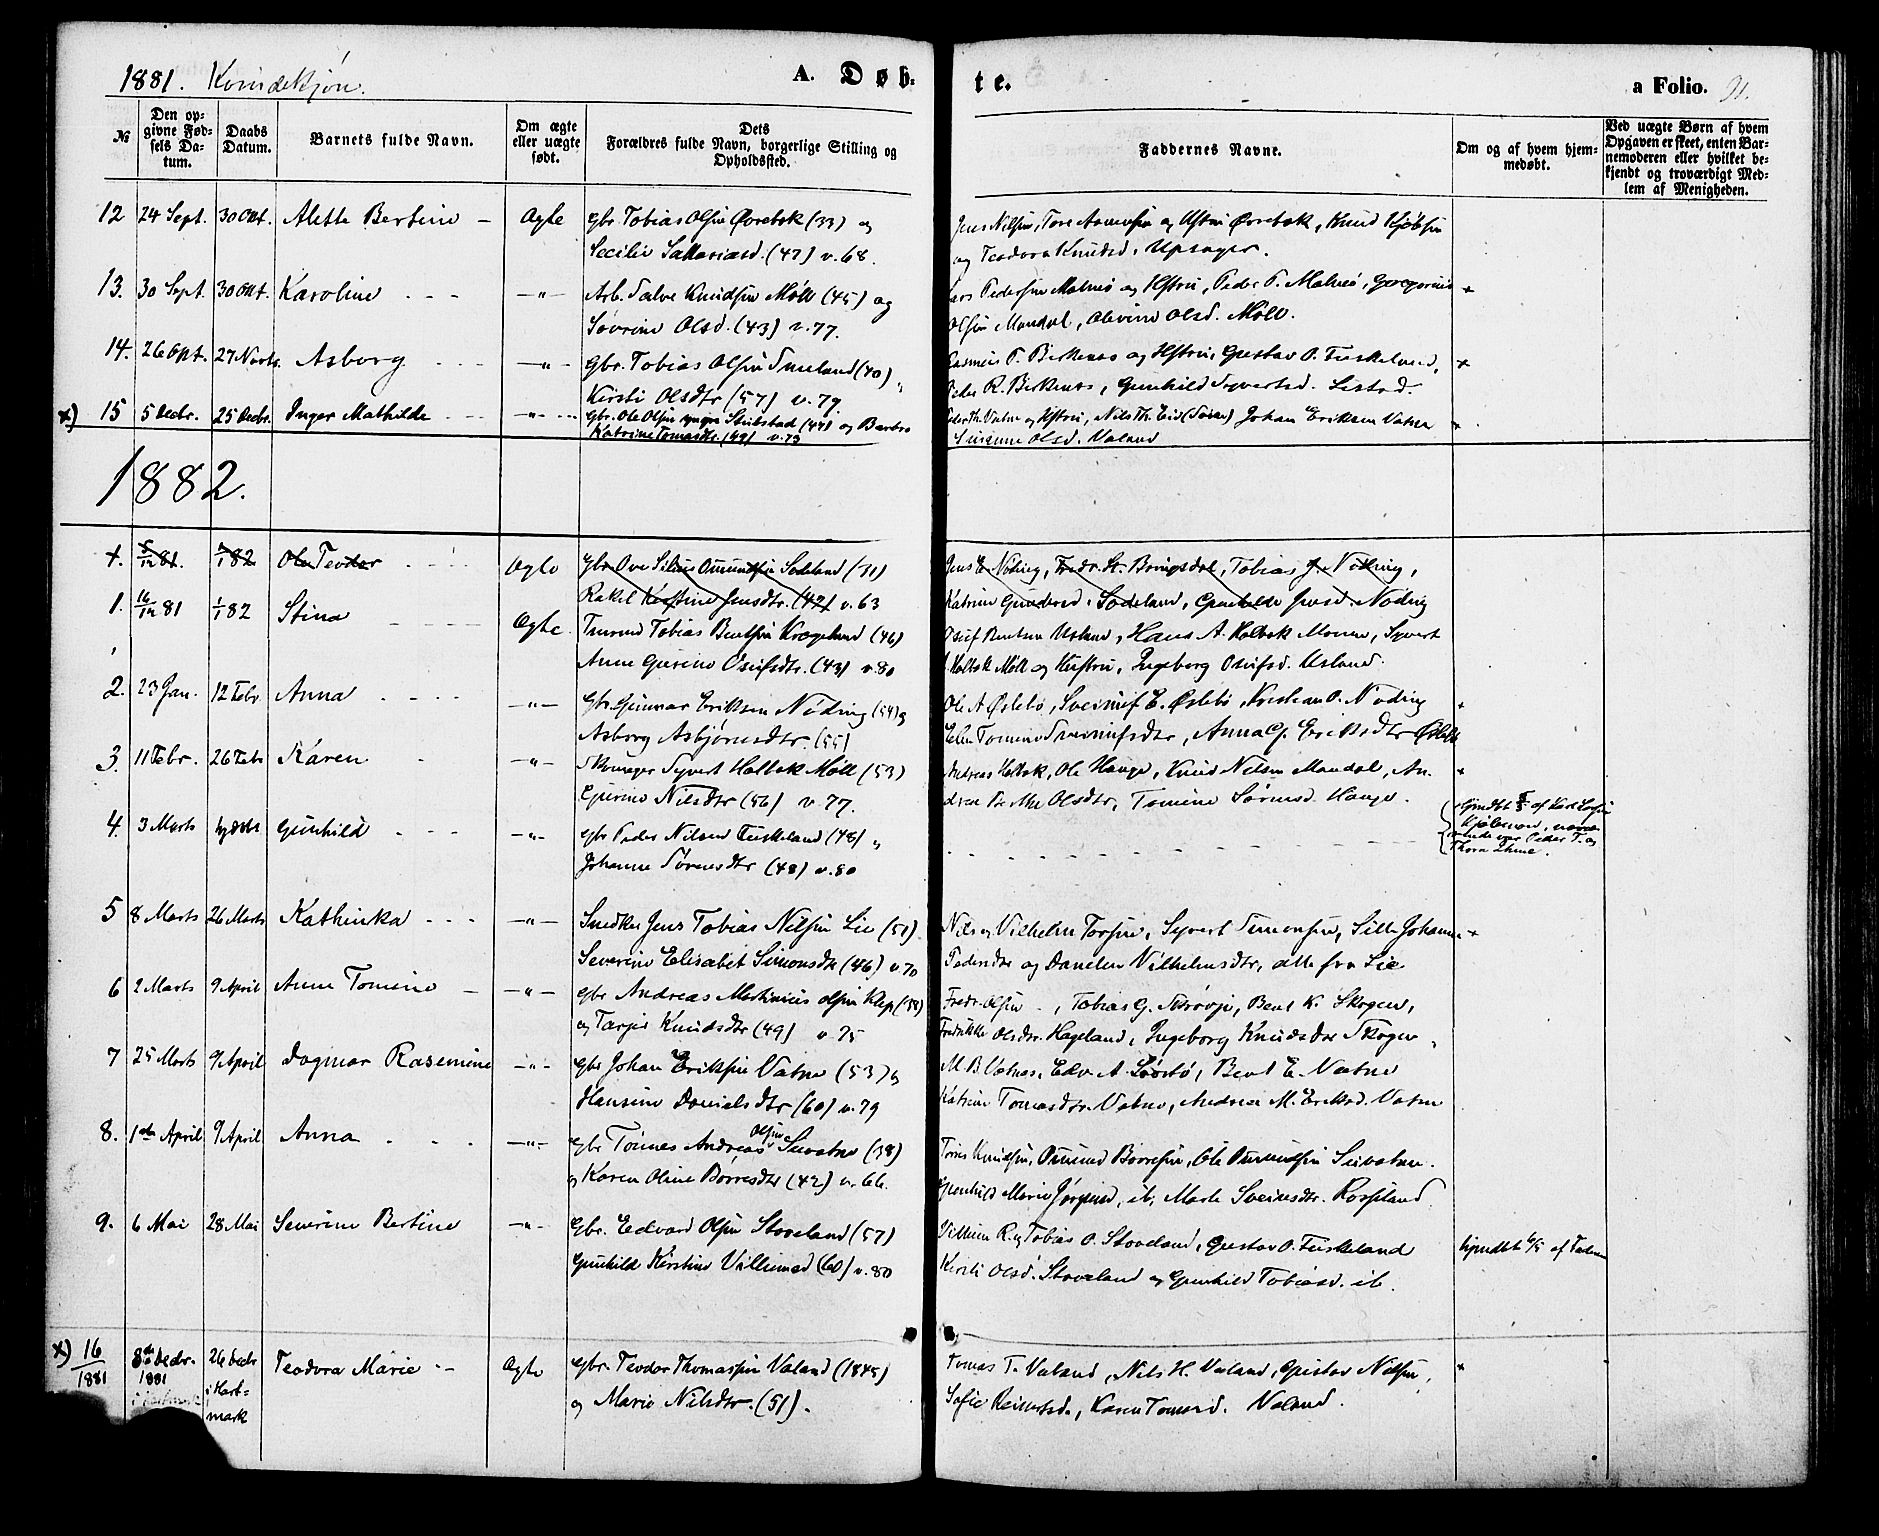 1881. Kvindekjøn.
A. Døb-
te.
a Folio. 91.
№
Den op-
givne Fød-
sels Da-
tum.
Daabs
Datum.
Barnets fulde Navn.
Om ægte
eller uægte
født.
Dets
Forældres fulde Navn, borgerlige Stilling og
Opholdssted.
Faddernes Navne.
Om og af hvem hjem-
medøbt.
Ved uægte Børn af hvem
Opgaven er skeet, enten Bar-
nemoderen eller hvilket be-
kjendt og troværdigt Med-
lem af Menigheden.
12 24 Sept. 30 Okt. Alette Bertine - Ægte Gbr. Tobias Olsen Øvrebøk (33) og
Cecilie Sakariasd. (47) v. 68.
Jens Nilsen, Tore og Hstru Øvrebøk, Knud
og Teodora Knudsd. Upsager.
13. 30 Sept. 30 Okt. Karoline - - - -"- Arb. Salve Knudsen Møll (45) og
Sövrine Olsd. (43) v. 77.
Lars Pedersen Malmø og Hstru, Peder P. Malmø, Gregorius +
Olsen Mandal, Olevine Olsd. Møll.
14. 26 Opt. 27 Novb. Asborg - - - -"- Gbr. Tobias Olsen Smeland (40) "
Kirsti Olsdtr (57) v. 79.
Rasmus P. Birkenes og Hstru, Gustav O. Fuskeland, +
Peder R. Birkenes, Gunhild Syvertsd. Listad.
x) 15 5 Decbr. 25 Decbr. Inger Mathilde - - - -"- - - Gbr. Ole Olsen yngre Stubstad (44) og Barbro
Katrine Tomasdtr (49) v. 73
Peder Th. Vatne og Hstru, Nils Th. Eid Johan Eriksen Vatne +
Susanne Olsd. Valand
1882.
+. 5/12 81. 1/1 82 Ole Teodor - - - - Ægte Gbr. Ove Omundsen Sodeland (31)
Rakel Kirstine Jensdtr. (42) v. 63
Jens E. Nöding, Fredr. St. Bringsdal, Tobias J. Nöding,
Katrine Gundersd. Sodeland, Gunhilde Jensd. Nöding
1. 16/12 81 1/1 82 Stina - - - - Ægte. Tobias Bentsen Kragelund (46)
Anne Gurine Osufsdtr. (43) v. 80
Osuf Bentsen Usland, Hans A. Holbæk Monen, Syvert
Holbæk Møll og Hustru, Ingeborg Osufsd. Usland.
2. 23 Jan. 12 Febr Anna - - - - -"- Gbr. Gunnar Eriksen Nöding (54) og
Asborg Asbjörnsdtr. (55)
Ole A. Øslebö, Sveinuf E. Øslebö, Kristian O. Nöding +
Elen Tomine Sveinufsdtr, Anna G. Eriksdtr Øslebö
3. 11 Febr. 26 Febr Karen - -"- Skomager Syvert Holbæk Møll (53)
Gurine Nilsdtr (56) v. 77.
Andreas Holbæk, Ole Hauge, Knud Nilsen Mandal, An- +
drea Olsdtr, Tomine Sörensd. Hauge.
4. 3 Marts Gunhild - - - -"- Gbr Peder Nilsen Fuskeland (48) "
Johanne Sörensdtr (48) v. 80
5 8 Marts 26 Marts Kathinka - - - -"- Snedker Jens Tobias Nilsen Lie (51)
Severine Elisabet Simonsdtr (46) v. 70
Nils og Vilhelm Torsen, Syvert Simonsen, Sille Johanne +
Pedersdtr og Danelen Vilhelmsdtr, alle fra Lie
6 2 Marts 9 April Anne Tomine - -"- Gbr Andreas Martinius Olsen Klep
og Tarjer Knudsdtr (49) v. 75
Fredr. Olsen -, Tobias G. Skrövje, Bent K. Skogen,
Fredrikke Olsdtr. Hageland, Ingeborg Knudsdtr Skogen
7 25 Marts 9 April Dagmar Rasemine -"- Gbr Johan Eriksen Vatne (53) og
Hansine Danielsdtr (60) v. 79
M. B. Vatnes, Edv. A. Søstö, Bent E. Vatne
Katrine Tomasdtr. Vatne, Andrea M. Eriksd. Vatne
8. 1ste April 9 April Anna - - - -"- Gbr Tönnes Andreas Olsen Suvatne (38)
og Karen Oline Börresdtr (42) v. 66.
Tönnes Knudsen, Omund Börresen, Ole Omundsen Suvatne.
Gunhild Marie Jörgensd. ib., Marte Sveinsdtr. Rossland
9. 6 Mai 28 Mai Severine Bertine -"- Gbr. Edvard Olsen Stoveland (57)
Gunhilde Kirstine Villumsd (60) v. 80
Villum R. og Tobias O. Stoveland, Gustav O. Fuskeland
Kirsti Olsd. Stoveland og Gunhild Tobiasd. ib.
hjmdbt 6/5 af Faderen
x) 16/1881 8de Decbr. 1881 26 Decbr i Hart-
mark
Teodora Marie - Ægte Gbr. Teodor Thomassen Valand (1845)
og Marie Nilsdtr. (51).
Tomas T. Valand, Nils H. Valand, Gustav Nilsen, +
Sofie Reinertsd., Karen Tomasd. Valand.